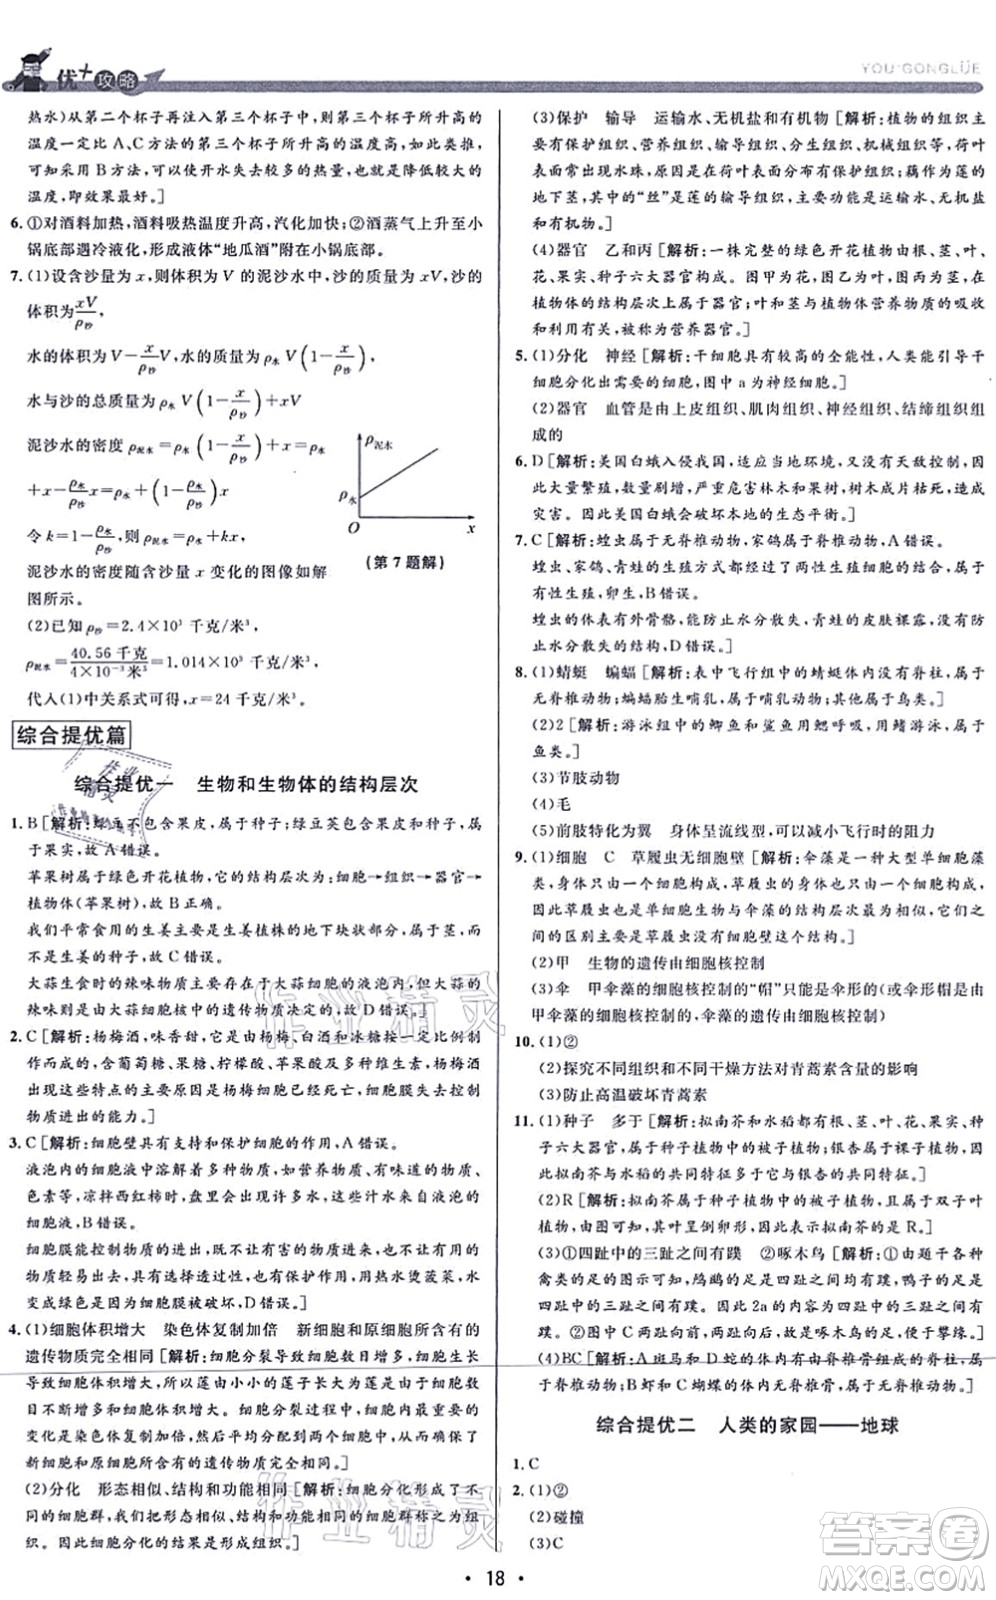 优+攻略
YOU+GONGLÜE
热水)从第二个杯子再注入第三个杯子中,则第三个杯子所升高的
温度一定比 A、C 方法的第三个杯子所升高的温度高,如此类推,
可知采用 B 方法,可以使开水失去的热量,也就是散失的热量最
温度,即效果最好。]
6.①对酒料加热,酒料吸热温度升高,汽化加快;②酒蒸气上升在小
锅底部遇冷液化,形成液体“地瓜酒”附在小锅底部。
7.(1)设含沙量为 x,则体积为 V 的泥沙水中,沙的质量为 xV,沙的
体积为 xV/ρ沙,
水的体积为 V−x/ρ沙V,水的质量为 ρ水V(1−x/ρ沙)
水与沙的总质量为 ρ水V(1−x/ρ沙)+xV
泥沙水的密度 ρ泥水=ρ水(1−x/ρ沙)
+x−ρ水/ρ沙x=ρ水+(1−ρ水/ρ沙)x
令 k=1−ρ水/ρ沙,则 ρ泥水=ρ水+kx,
泥沙水的密度随含沙量 x 变化的图像如解
图所示。
ρ泥水
ρ水
O
x
(第 7 题解)
(2)已知 ρ沙=2.4×10³ 千克/米³
ρ泥水=40.56 千克/4×10⁻³米³=1.014×10³ 千克/米³
代入(1)中关系式可得,x=24 千克/米³
综合提优篇
综合提优一 生物和生物体的结构层次
1.B[解析:绿豆不包含果皮,属于种子;绿豆荚包含果皮和种子,
属于果实,故 A 错误。
苹果树属于绿色开花植物,它的结构层次为:细胞→组织→器官→
植物体(苹果树),故 B 正确。
我们平常食用的生姜是生姜植株的地下块状部分,属于茎,而
不是生姜的种子,故 C 错误。
大蒜生食时的辣味物质主要存在于大蒜的液泡内,大蒜的
辣味物质不是遗传物质,D 错误。]
2.C[解析:杨梅酒,味香甜,是用杨梅、白酒和冰糖按一定比例
制作而成,含葡萄糖、果糖、柠檬酸、苹果酸及多种维生素,
因为制作时的高温,所以杨梅细胞已经死亡,细胞失去控制物质
进出的能力。]
3.C[解析:细胞壁具有支持和保护细胞的作用,A 错误。
液泡内的细胞液中溶解着多种物质,如有味道的物质、
色素等,凉拌西红柿时,盘里会有许多水,这些汁水来自液泡的
细胞液,B 错误。
细胞膜能控制物质的进出,既不让有害的物质进来,也不让
有用的物质轻易出去,具有选择透过性,所以用热水烫菠菜,水
变成绿色是细胞膜被破坏,D 错误。]
4.(1)细胞体积增大 染色体复制加倍 新细胞和原细胞所含有的
遗传物质完全相同[解析:细胞分裂导致细胞数目增多,细胞生长
导致细胞体积增大,所以莲由小小的莲子发育成具有荷叶、
荷花等较大结构的莲。细胞分裂过程中细胞核内最明显的
变化是染色体复制加倍,这样才能保证新细胞和原细胞所含
有的遗传物质相同。]
(2)分化 形态相似、结构和功能相同[解析:细胞分化具有
不同功能的细胞群,每个细胞群都是由形态相似、结构和功
能相同的细胞联合在一起形成的,这样的细胞群称为组织,
组织是细胞分化的结果,细胞分化是形成组织。]
(3)保护 输导 运输水、无机盐和有机物[解析:植物的组织主
要有保护组织、营养组织、输导组织、分生组织、机械组织等,荷叶
表面出现水珠,是因为荷叶表面分布有保护组织;莲的茎是莲
的地下茎,茎中的“丝”是莲的输导组织,功能是运输水、无机
盐和有机物。]
(4)器官 乙和丙[解析:一株完整的绿色开花植物由根、茎、叶、
花、果实、种子六大器官构成。图甲为花,图乙为叶,图丙为茎,在
植物体的结构层次上属于器官;叶和茎与植物体营养物质的吸收
和制造有关,称为营养器官。]
5.(1)分化 神经[解析:干细胞具有较高的全能性,人类能引导干
细胞分化出需要的细胞,图中 a 为神经细胞。]
(2)器官 血管是由上皮组织、肌肉组织、神经组织、结缔组织组
成的
6.D[解析:美国白蛾入侵我国,适应当地环境,又没有天敌控制,因
此大量繁殖,数量剧增,严重危害林木和果树,树木成片枯死,造成
灾害。因此美国白蛾破坏本地的生态平衡。]
7.C[解析:蝗虫属于无脊椎动物,家鸽属于脊椎动物,A 错误。
蝗虫、家鸽、青蛙的生殖方式都是两性生殖细胞的结合,属于
有性生殖,卵生,B 错误。
蝗虫的体表有外骨骼,能防止水分散失,青蛙的皮肤裸露,没有防
止水分散失的结构,D 错误。]
8.(1)蜻蜓 蝙蝠[解析:表中飞行组中的蜻蜓体内没有脊柱,属于
无脊椎动物;蝙蝠胎生哺乳,属于哺乳动物,其他属于鸟类。]
(2)2[解析:游泳组中的鲫鱼和鲨鱼用鳃呼吸,用鳍游泳,属于
鱼类。]
(3)节肢动物
(4)毛
(5)前肢特化为翼 身体呈流线型,可以减小飞行时的阻力
9.(1)细胞 C 草履虫无细胞壁[解析:伞藻是一种大型单细胞藻
类,身体只由一个细胞构成,草履虫的身体也只由一个细胞构成,
所以草履虫是单细胞生物与伞藻的结构层次最为相似,它们之
间的区别主要为草履虫没有细胞壁这一结构。]
(2)甲 生物的遗传由细胞核控制
(3)伞 甲伞藻的细胞核控制的“帽”只能是伞形的(或伞形帽是由
甲伞藻的细胞核控制的,伞藻的遗传由细胞核控制)
10.(1)②
(2)探究不同干燥方法对青蒿素含量的影响
(3)防止高温破坏青蒿素
11.(1)种子 多于[解析:拟南芥和水稻都有根、茎、叶、花、果实、
种子六大器官,属于种子植物中的被子植物,银杏属于裸子植物。
因此拟南芥与水稻的共同特征比与银杏的共同特征多。]
(2)R[解析:拟南芥属于种子植物中的被子植物,且属于双子叶植
物,其叶呈倒卵形,因此可推出拟南芥是 R。]
(3)①四趾中的三趾之间有蹼 ②啄木鸟[解析:由题干中各种
禽类的足的特征可知,鸬鹚的足是四趾之间均有蹼,鸭子的足是四
趾中的三趾有蹼。因此 2a的特征是“四趾中的三趾之间有蹼”。
啄木鸟的足两趾向前,两趾向后,便于攀缘。]
(4)BC[解析:A 斑马和 D 蛇的体内有由脊椎骨组成的脊柱,属
于脊椎动物;B 虾和 C 蝴蝶的体内无脊椎骨,属于无脊椎动物。]
综合提优二 人类的家园——地球
1.C
2.(1)①②
(2)碰撞
(3)C
· 18 ·
作业精灵
作业精灵
答案圈
MXQE.COM